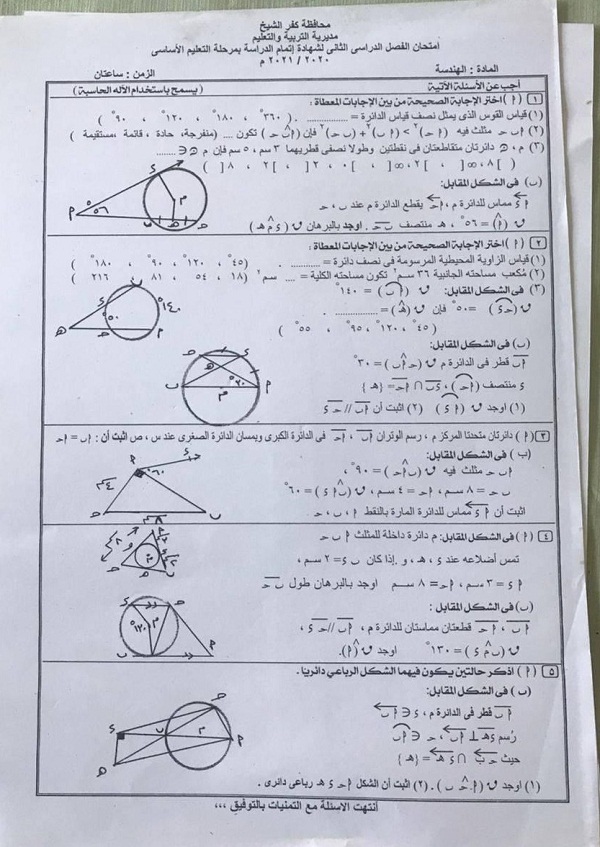 محافظة كفر الشيخ
مديرية التربية والتعليم
أمتحان الفصل الدراسى الثانى لشهادة إتمام الدراسة بمرحلة التعليم الأساسى
٢٠٢٠ / ٢٠٢١ م
المادة : الهندسة الزمن : ساعتان
أجب عن الأسئلة الآتية (يسمح باستخدام الآله الحاسبة)
١ ( أ ) اختر الإجابة الصحيحة من بين الإجابات المعطاة:
(١) قياس القوس الذى يمثل نصف قياس الدائرة = ............ . ( ٣٦٠° ، ١٨٠° ، ١٢٠° ، ٩٠° )
(٢) أ ب حـ مثلث فيه (أ حـ)٢ > (أ ب)٢ + (ب حـ)٢ فإن (أ ب حـ) تكون .... (منفرجة، حادة ، قائمة ،مستقيمة )
(٣) م ، ن دائرتان متقاطعتان فى نقطتين وطولا نصفى قطريهما ٣ سم ، ٥ سم فإن م ن ∈ ....
] ٨ ، ∞ [ ، ] ٢ ، ∞ [ ، ] ٠ ، ٢ [ ، ] ٢ ، ٨ [
(ب) فى الشكل المقابل:
أ د مماس للدائرة م ، أ حـ يقطع الدائرة م عند ب ، حـ
ق (أ) = ٥٦° ، هـ منتصف ب حـ . أوجد بالبرهان ق (د م هـ)
م
٥٦°
٢ ( أ ) اختر الإجابة الصحيحة من بين الإجابات المعطاة:
(١) قياس الزاوية المحيطية المرسومة فى نصف دائرة = ............ . (٤٥° ، ١٢٠° ، ٩٠° ، ١٨٠° )
(٢) مُكعب مساحته الجانبية ٣٦ سم٢ تكون مساحته الكلية = .... سم٢ (١٨ ، ٥٤ ، ٨١ ، ٢١٦ )
(٣) فى الشكل المقابل: ق (أ ب) = ١٤٠°
ق (حـ د) = ٥٠° فإن ق (هـ) = ............ .
( ٤٥° ، ١٢٠° ، ٩٥° ، ٥٥° )
١٤٠°
٥٠°
(ب) فى الشكل المقابل:
أ ب قطر فى الدائرة م ق (حـ أ ب) = ٣٠°
د منتصف (أ حـ) ، د ب ∩ أ حـ = { هـ }
(١) أوجد ق (أ د) (٢) اثبت أن أ ب // حـ د
م
٣ ( أ ) دائرتان متحدتا المركز م ، رسم الوتران أ ب ، أ حـ فى الدائرة الكبرى ويمسان الدائرة الصغرى عند س ، ص اثبت أن : أ ب = أ حـ
( ب ) فى الشكل المقابل:
أ ب حـ مثلث فيه ق (ب أ حـ) = ٩٠° ،
ب حـ = ٨ سم ، أ حـ = ٤ سم ، ق (ب أ د) = ٦٠°
اثبت أن أ د مماس للدائرة المارة بالنقط أ ، ب ، حـ
٦٠°
٤ ( أ ) فى الشكل المقابل: م دائرة داخلة للمثلث أ ب حـ
تمس أضلاعه عند د ، هـ ، و .إذا كان ب د = ٢ سم ،
أ د = ٣ سم ، أ حـ = ٨ سم أوجد بالبرهان طول ب حـ
(ب) فى الشكل المقابل :
أ ب ، أ حـ قطعتان مماستان للدائرة م ، أ ب // حـ د ،
ق (ب م د) = ١٣٠° أوجد ق (أ).
م
١٣٠°
٥ ( أ ) اذكر حالتين يكون فيهما الشكل الرباعى دائريًا.
(ب) فى الشكل المقابل:
أ ب قطر فى الدائرة م ، د ∈ أ ب
رُسم د هـ ⊥ أ ب ، حـ ∈ أ ب
حيث حـ ب ∩ د هـ = { هـ }
(١) أوجد ق (أ حـ ب) . (٢) اثبت أن الشكل أ حـ د هـ رباعى دائرى .
م
أنتهت الاسئلة مع التمنيات بالتوفيق ،،،